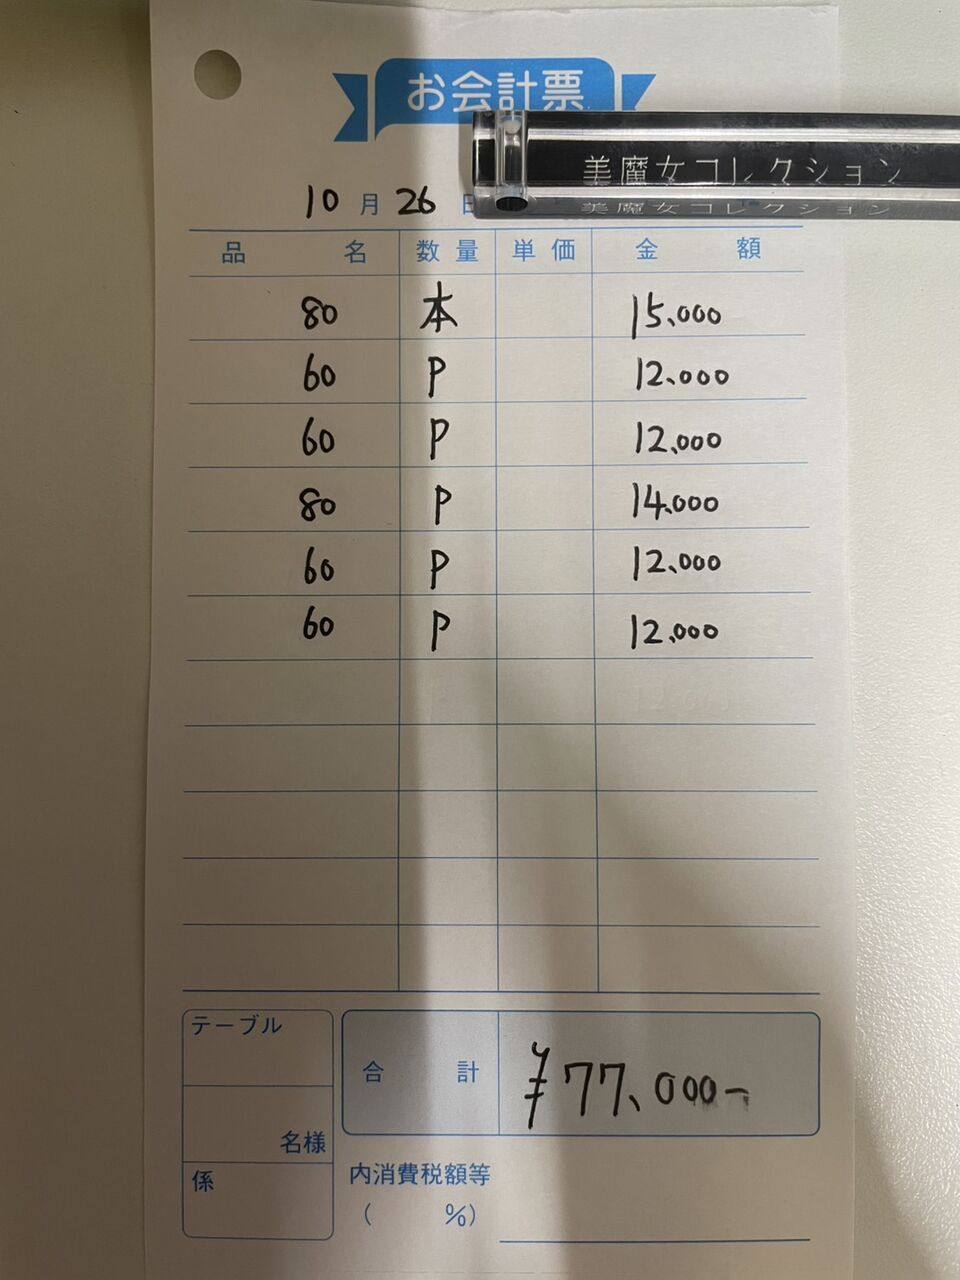 お会計票
美魔女コレクション
美魔女コレクション
10月26日
品名 数量 単価 金額
80 本 15,000
60 P 12,000
60 P 12,000
80 P 14,000
60 P 12,000
60 P 12,000
テーブル
名様
係
合計 ¥77,000-
内消費税額等
( %)